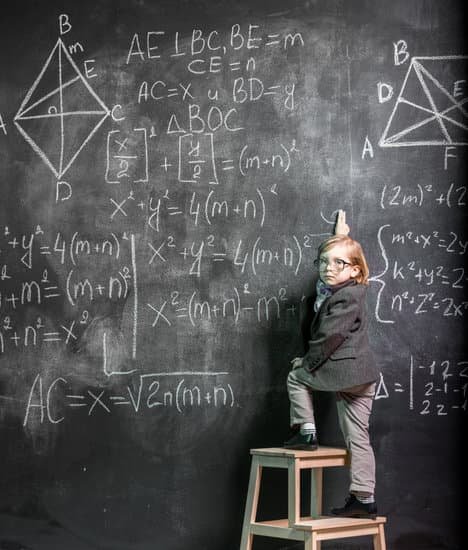 B
m
E
n
A
C
D
AE⊥BC, BE=m
CE=n
AC=x и BD=y
△BOC
[x/2]² + [y/2]² = (m+n)²
x²+y²=4(m+n)²
²+y²=4(m+n)²
+m²=(m+n)²
+n²=x²
x²+y²=4(m+n)²
x²=(m+n)²-m²+
AC=x=√2n(m+n)
B
D
E
A
F
(2m)²+(2
m²+x²=2
k²+y²=2
n²+z²=2x
△=|-1 2 2
2 -1
2 2 -